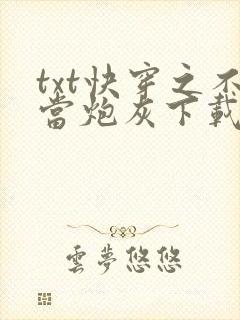 txt快穿之不
當炮灰下載
雲夢悠悠